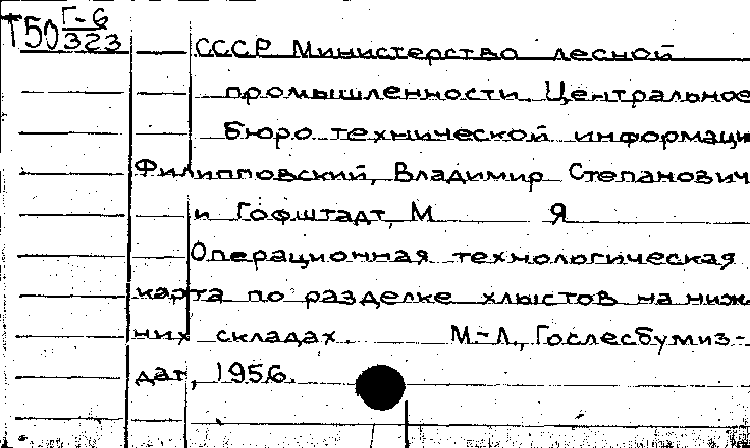 Т50 Г-6
323
СССР Министерство лесной
промышленности. Центральное
Бюро технической информаци
Филипповский, Владимир Степанович
и Гофштадт, М Я
Операционная технологическая
карта по разделке хлыстов на ниж-
них складах. М.-Л., Гослесбумиз-
дат, 1956.